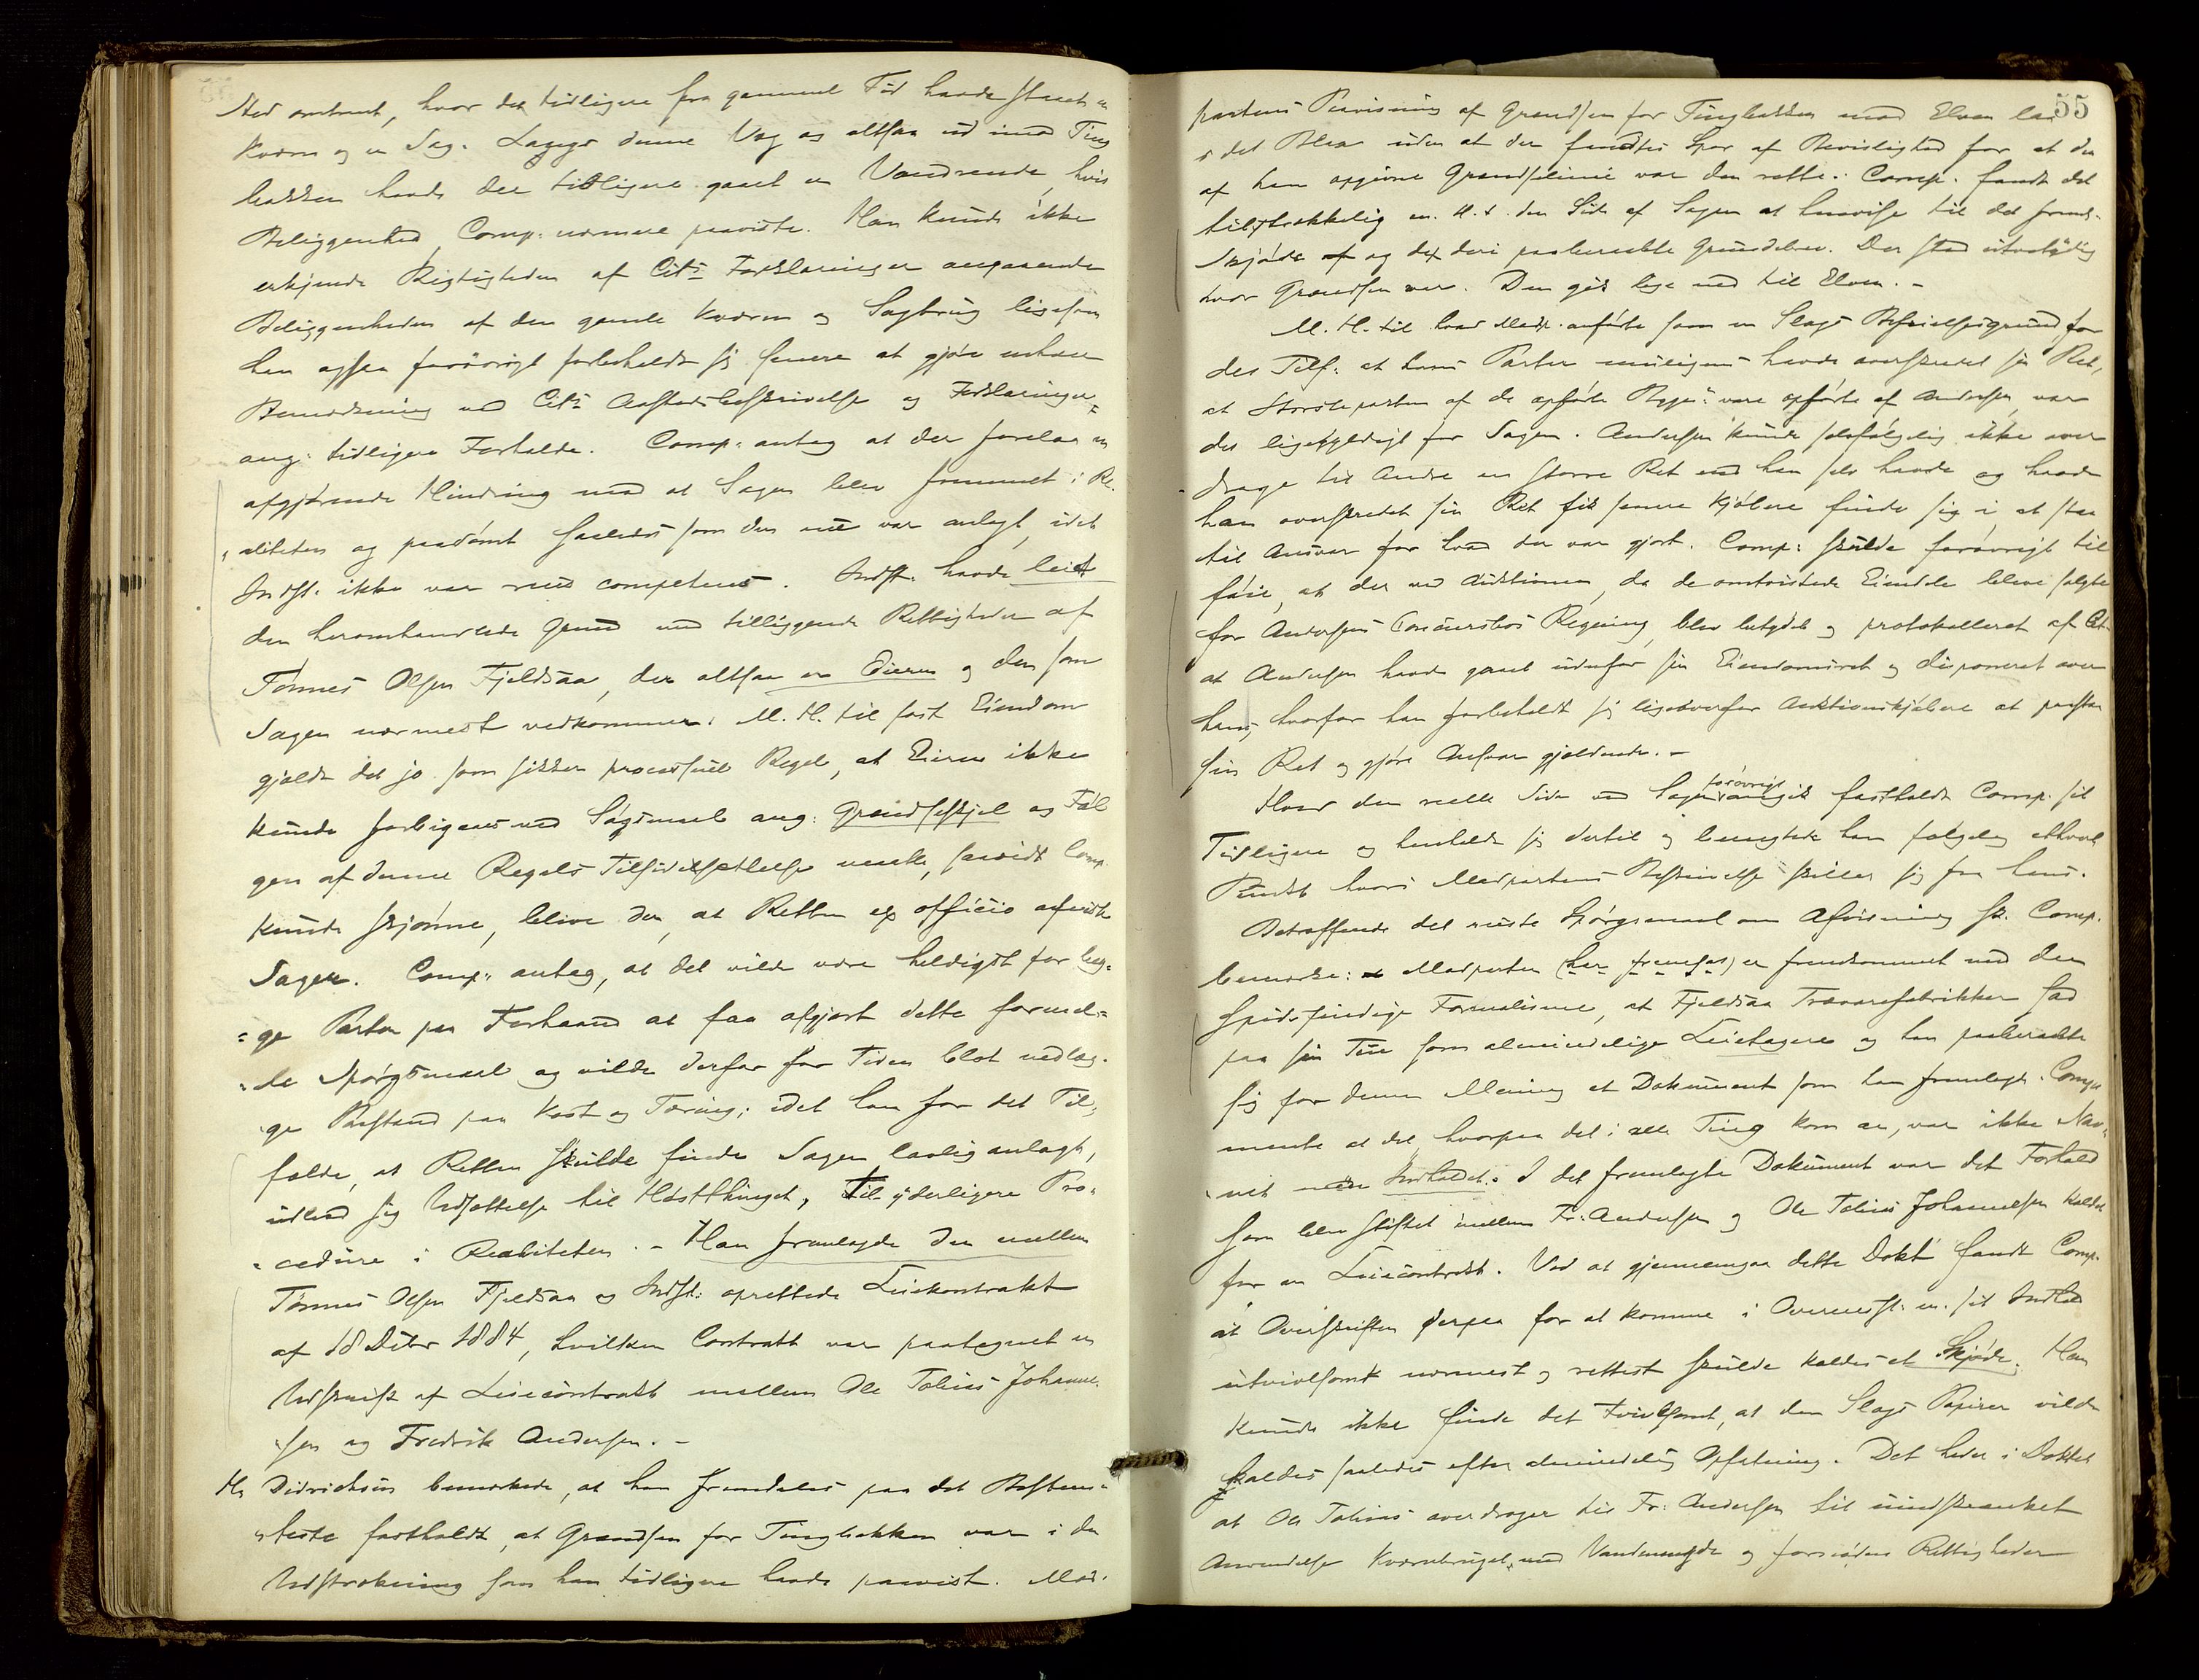 Sted omtrent, hvor der tidligere fra gammel Tid havde staaet en
Kværn og en Sag. Langs denne Væg og altsaa ud imod Ting
bakken havde der tidligere gaaet en Vandrende, hvis
Beliggenhed Comp: nærmere paaviste. Han kunde ikke
erkjende Rigtigheden af Cits Forklaringer angaaende
Beliggenheden af den gamle Kværn og Sagbrug ligesom
han ogsaa forøvrigt forbeholdt sig senere at gjøre
Bemærkning ved Cits Aastedsbeskrivelse og Forklaringer
ang: tidligere Forholde. Comp: antog at der forelaa en
afgjørende Hindring mod at Sagen blev fremmet i Re-
aliteten og paadømt saaledes som den nu var anlagt, idet
Indst. ikke var rund competens. Indst. havde leiet
den heromhandlede Grund med tilliggende Rettigheder af
Tønnes Olsen Fjeldsaa, der altsaa er Eieren og den som
Sagen nærmest vedkommer. M. H. til fast Eiendom
gjaldt det jo som sikker processuel Regel, at Eieren ikke
kunde forbigaaes ved Søgsmaal ang: Grændseskjel og Føl
gen af denne Regels Tilsidesættelse maatte, saavidt Comp
kunde skjønne, blive den, at Retten ex officio afviste
Sagen. Comp: antog, at det vilde være heldigst for beg-
ge Parter paa Forhaand at faa afgjort dette formel-
le Spørgsmaal og vilde derfor for Tiden blot nedlæg-
ge Paastand paa Kost og Tæring; idet han for det Til-
fælde, at Retten skulde finde Sagen lovlig anlagt,
udbad sig Udsættelse til Høstthinget, til yderligere Pro-
cedure i Realiteten. - Han fremlagde den mellem
Tønnes Olsen Fjeldsaa og Indst: oprettede Leiekontrakt
af 18 Decbr 1884, hvilken Contrakt var paategnet en
Udskrift af Leiecontrakt mellem Ole Tobias Johanne-
sen og Fredrik Andersen. -
Hr Didrichsen bemærkede, at han fremdeles paa det Bestem-
teste fastholdt, at Grændsen for Tingbakken var i den
Udstrækning som han tidligere havde paavist. Mod-
55
partens Paavisning af Grændsen for Tingbakken mod Elven laa
i det Blaa uden at der fandtes Spor af Bevislighed for at den
af ham opgivne Grændselinie var den rette. Comp. fandt det
tilstrækkelig m. H. t. den Side af Sagen at henvise til det freml.
Skjøde og de deri paaberaabte Grunddele. Der stod
hvor Grændsen var. Den gik lige ned til Elven. -
M. H. til hvad Modp. anførte som en Slags Befrielsesgrund for
det Tilf: at hans Parter muligens havde overskredet sin Ret,
at Størsteparten af de opførte Bygn: vare opførte af Andersen, var
det ligegyldigt for Sagen. Andersen kunde selvfølgelig ikke over
drage til Andre en større Ret end han selv havde og havde
han overskredet sin Ret fik senere Kjøbere finde sig i, at staa
til Ansvar for hvad der var gjort. Comp: skulde forøvrigt til
føie, at der ved Auktionen, da de omtvistede Eiendele bleve solgte
for Andersens Concursbos Regning, blev lutydet og protokolleret af Cit.
at Andersen havde gaaet udenfor sin Eiendomsret og disponeret over
hans, hvorfor han forbeholdt sig ligeoverfor Auktionskjøbere at paastaa
sin Ret og gjøre Ansvar gjældende. -
Hvad den reelle Side ved Sagen forøvrigt angik fastholdt Comp. sit
Tidligere og henholdt sig dertil og benægtede han følgelig ethvert
Punkt hvori Modpartens Beskrivelse skiller sig fra hans.
Betræffende det reiste Spørgsmaal om Afvisning sk. Comp.
bemærke: Modparten (her fremfor) er fremkommet med den
spidsfindige Formalisme, at Fjeldsaa Trævarefabrikker sad
paa sin Tue som almindelige Leietagere og han paaberaabte
sig for denne Mening et Dokument som han fremlagde. Comp
mente at det hvorpaa det i alle Ting kom an, var ikke Nav-
net men Indholdet. I det fremlagte Dokument var det Forhold
som blev stiftet mellem Fr: Andersen og Ole Tobias Johannesen kaldet
for en Leiecontrakt. Ved at gjennemgaa dette Dokt fandt Comp.
at Overskriften derpaa for at komme i Overensst. m. sit Indhold
utvivlsomt nærmest og rettest skulde kaldes et Skjøde. Han
kunde ikke finde det tvivlsomt, at den Slags Papirer vilde
kaldes saaledes efter almindelig Opfatning. Det heder i Doktet
at Ole Tobias overdrager til Fr: Andersen til uindskrænket
Anvendelse Kværnbruget med Vandmængde og fornødne Rettigheder